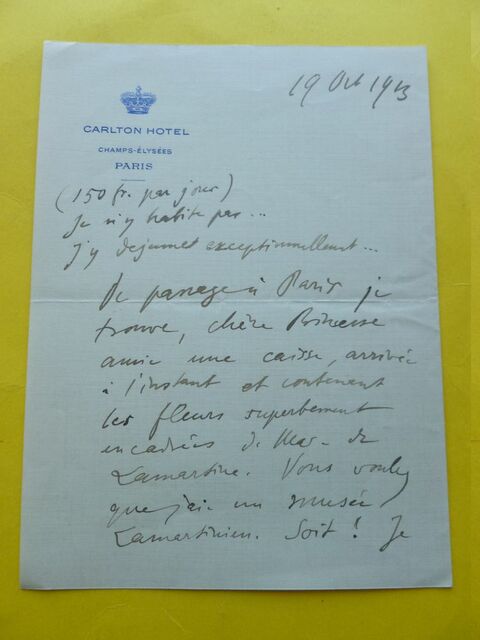 19 Oct 1913
CARLTON HOTEL
CHAMPS-ÉLYSÉES
PARIS
(150 fr. par jour)
Je n'y habite pas...
J'y dejeunet exceptionnellement...
De passage à Paris je
trouve, chère Princesse
amie une caisse, arrivée
à l'instant et contenant
les fleurs superbement
encadrées de Mme de
Lamartine. Vous voulez
que j'aie un musée
Lamartinien. Soit! Je